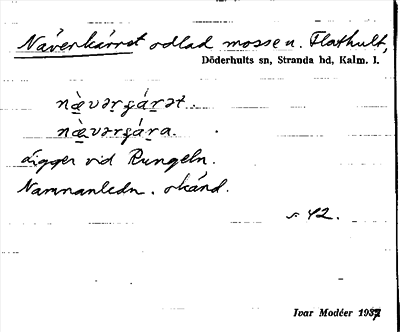 Näverkärret odlad mosse n. Flathult,
Döderhults sn, Stranda hd, Kalm. l.
nä̀vərʂä́rət.
nä̀vərʂä́ra.
Ligger vid Rungeln.
Namnanledn. okänd.
s 42.
Ivar Modéer 1937